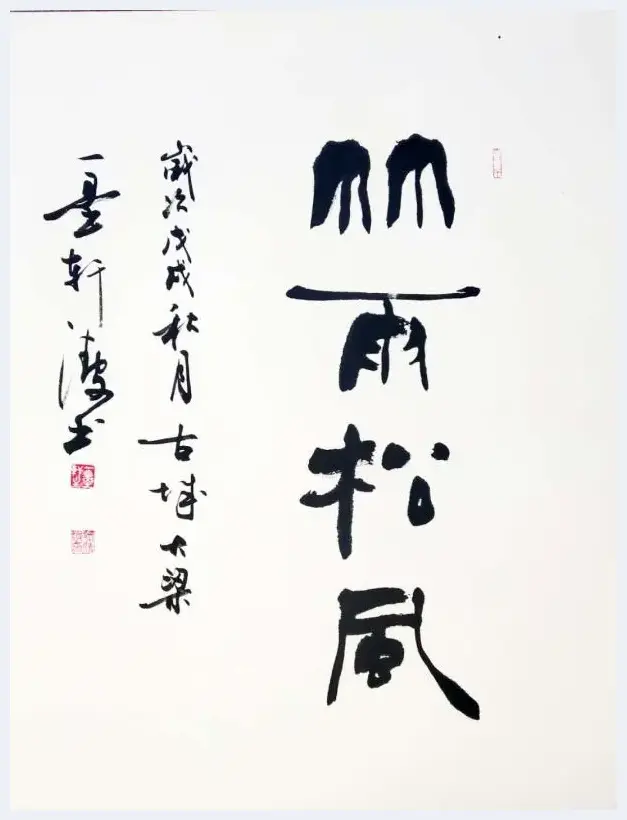 竹雨松風
歲次戊戌秋月古城大梁
一墨軒濤書